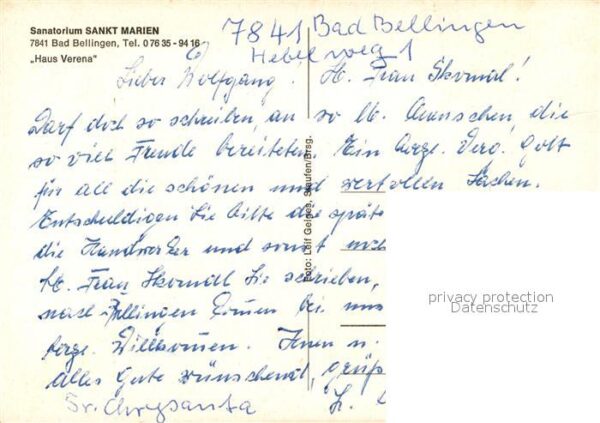 Sanatorium SANKT MARIEN
7841 Bad Bellingen, Tel. 0 76 35 - 94 16
„Haus Verena"
7841 Bad Bellingen
Hebelweg 1
Lieber Wolfgang. H. Frau Skornal!
Darf doch so schreiben, an so lb. Menschen, die
so viel Freude bereiteten. Ein herzl. Verg. Gott
für all die schönen und wertvollen Sachen.
Entschuldigen Sie bitte die späte
die Handwerker und sonst noch
lb. Frau Sie schrieben,
nach Bellingen kommen bei uns
herzl. Willkommen. Ihnen u.
alles Gute wünschend, grüß
Sr. Chrysanta
Foto: Leif Geiges, Staufen/Brsg.
privacy protection
Datenschutz